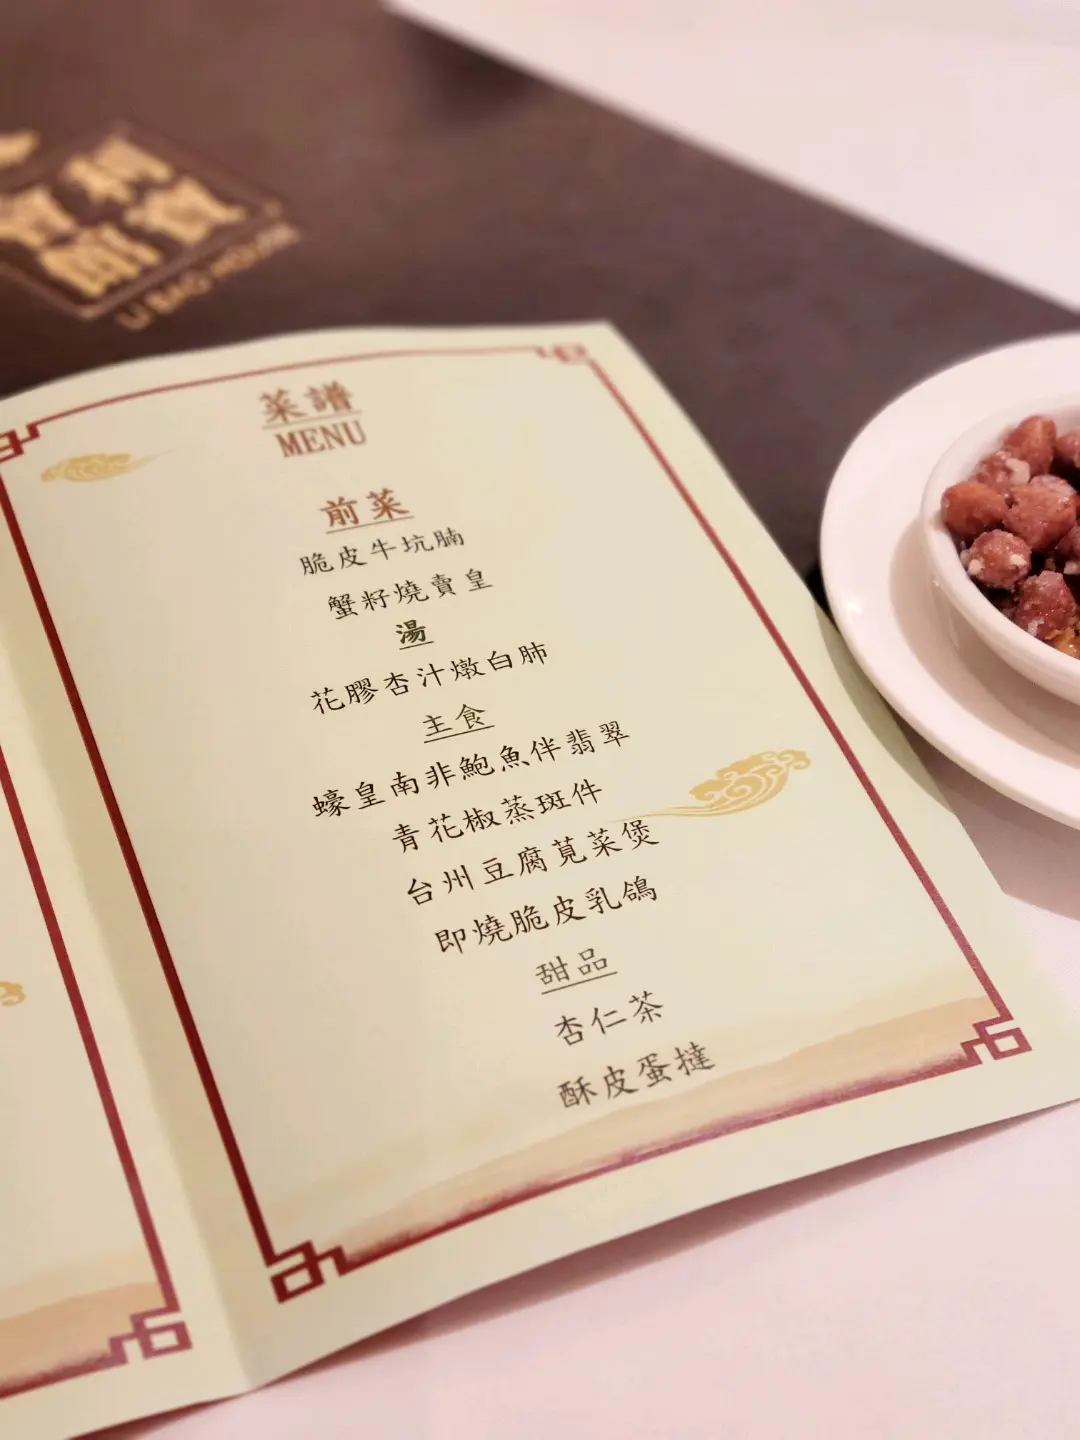 LI BAO HOUSE
菜譜
MENU
前菜
脆皮牛坑腩
蟹籽燒賣皇
湯
花膠杏汁燉白肺
主食
蠔皇南非鮑魚伴翡翠
青花椒蒸斑件
台州豆腐莧菜煲
即燒脆皮乳鴿
甜品
杏仁茶
酥皮蛋撻